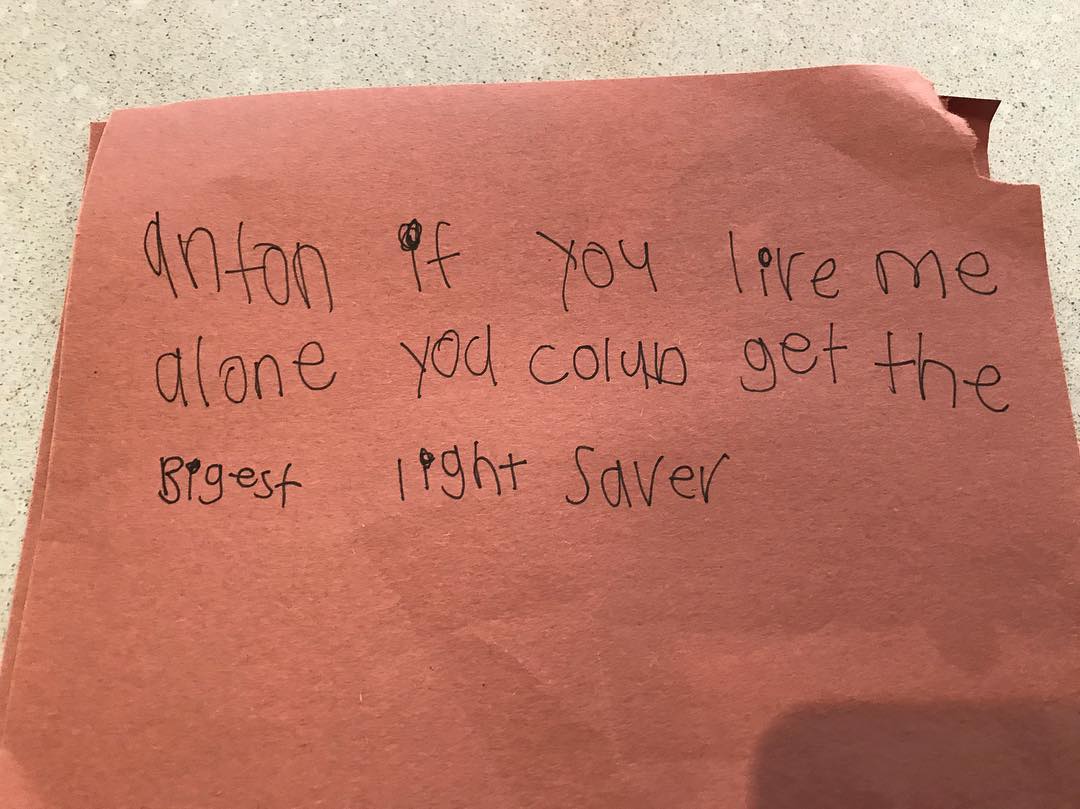 anton if you live me
alone you coluD get the
Bigest light Saver